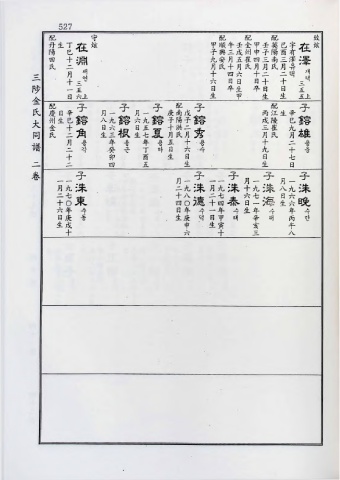 527
致鉉
在澤 재택 三五五上
字有澤
己酉三月二十日生
配英陽南氏
壬子三月二十日生
甲申四月十日卒
配金州崔氏
壬戌五月六日生甲
午三月十四日卒
配順興安氏
甲子九月十六日生
守鉉
在淵 재연 三五六上
丁巳十二月十一日
生
配丹陽田氏
子鎔雄 용웅
辛巳九月二十七日
生
配江陵崔氏
丙戌三月十九日生
子鎔秀 용수
戊子二月十六日生
配南陽洪氏
庚子十月五日生
子鎔夏 용하
一九五七年丁酉五
月六日生
子鎔根 용근
一九六三年癸卯四
月八日生
子鎔角 용각
辛巳十二月二十二
日生
配慶州金氏
子洙晩 수만
一九六六年丙午八
月八日生
子洙海 수해
一九七一年辛亥三
月十六日生
子洙泰 수태
一九七四年甲寅十
一月二十一日生
子洙德 수덕
一九八〇年庚申六
月二十四日生
子洙東 수동
一九七〇年庚戌十
一月二十六日生
三陟金氏大同譜 二卷